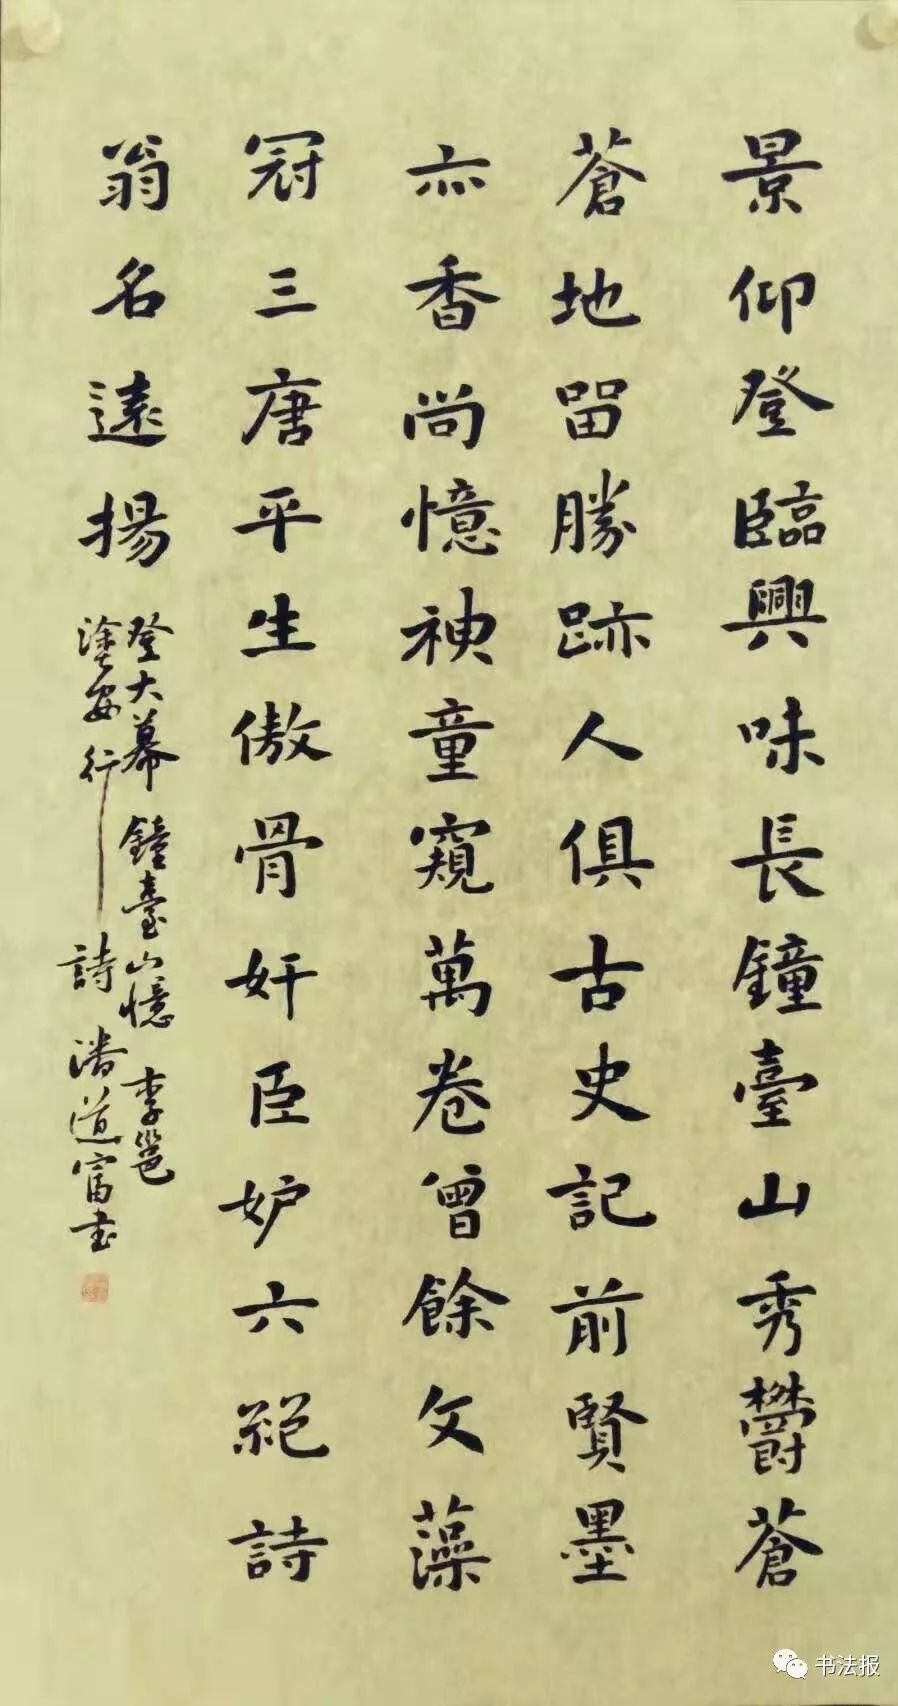 景仰登臨興味長鐘臺山秀欝蒼
蒼地畱勝跡人俱古史記前賢墨
亦香尚憶神童窺萬卷曾餘文藻
冠三唐平生傲骨奸臣妒六絕詩
翁名遠揚
登大幕鐘臺山憶李邕
塗安行詩潘道富書
书法报